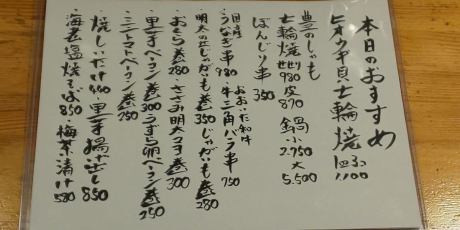 本日のおすすめ
ヒオウギ貝七輪焼 1コ 3コ 1,100
豊のしゃも
七輪焼 せせり980 皮870 鍋 小2,750 大5,500
ぼんじり串 350
おおいた和牛
国産うなぎ串 980 牛三角バラ串 750
明太のじゃがいも巻 350 じゃがいも巻 280
おくら巻 280 ささみ明太つま巻 300
里芋ベーコン巻 300 うずら卵ベーコン巻 250
ミニトマトベーコン巻 250
焼しいたけ 里芋揚げ出し 850
海老塩焼そば 850 梅茶漬け 580